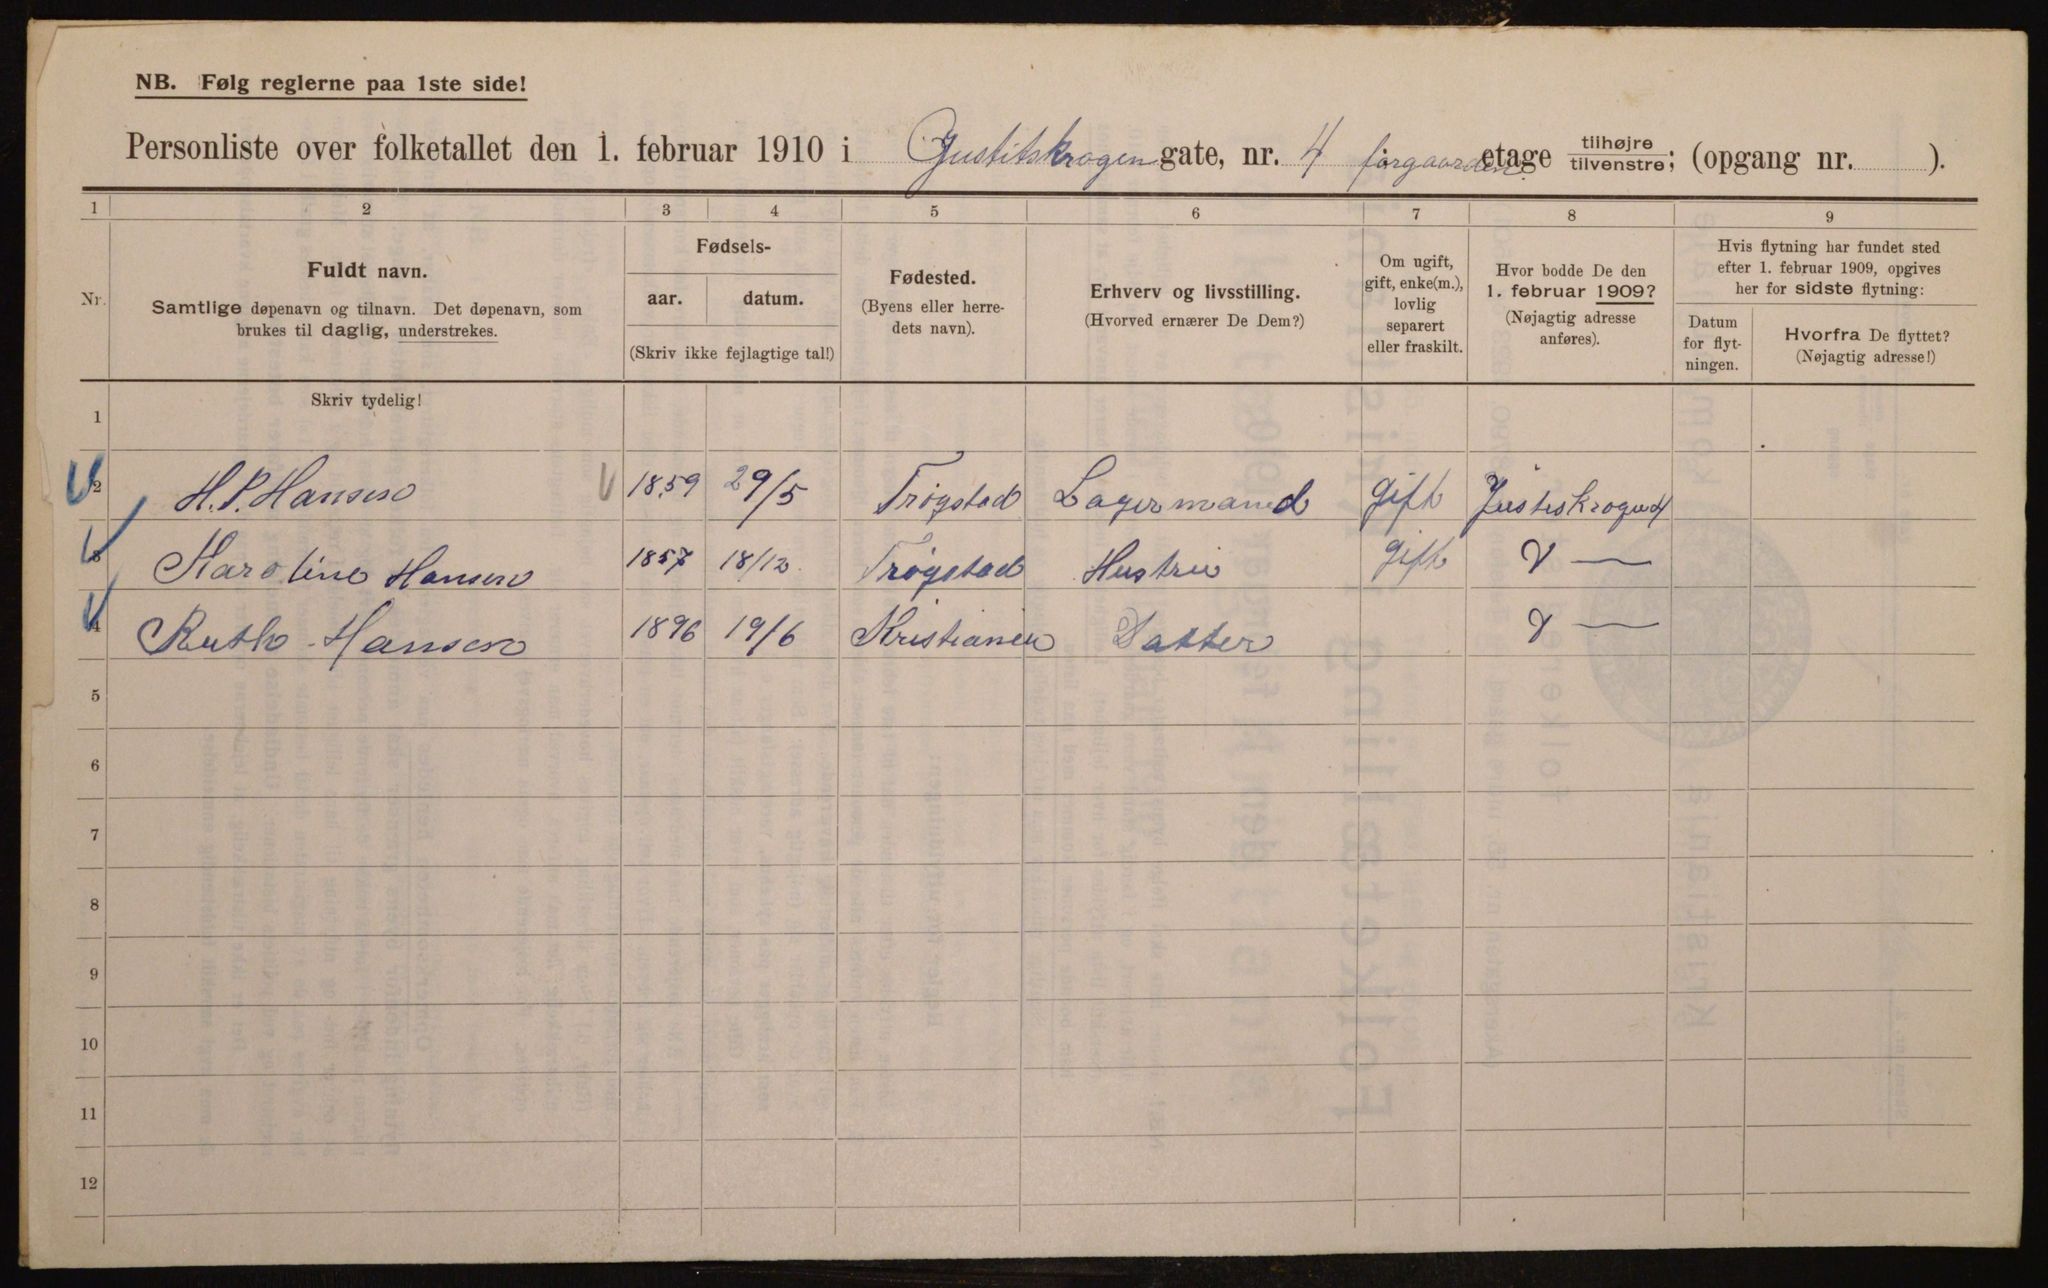 NB. Følg reglerne paa 1ste side!
Personliste over folketallet den 1. februar 1910 i Justitskrogen gate, nr. 4 forgaarden etage tilhøjre/tilvenstre; (opgang nr. ).
1 2 3 4 5 6 7 8 9
Nr.
Fuldt navn.
Samtlige døpenavn og tilnavn. Det døpenavn, som
brukes til daglig, understrekes.
Skriv tydelig!
Fødsels-
aar. datum.
(Skriv ikke fejlagtige tal!)
Fødested.
(Byens eller herre-
dets navn).
Erhverv og livsstilling.
(Hvorved ernærer De Dem?)
Om ugift,
gift, enke(m.),
lovlig
separert
eller fraskilt.
Hvor bodde De den
1. februar 1909?
(Nøjagtig adresse
anføres).
Hvis flytning har fundet sted
efter 1. februar 1909, opgives
her for sidste flytning:
Datum
for flyt-
ningen.
Hvorfra De flyttet?
(Nøjagtig adresse!)
1
2 H. P. Hansen 1859 29/5 Trøgstad Lagermand Gift Justiskrogen 4
3 Karoline Hansen 1857 18/12 Trøgstad Hustru Gift
4 Ruth Hansen 1896 19/6 Kristiania Datter
5
6
7
8
9
10
11
12